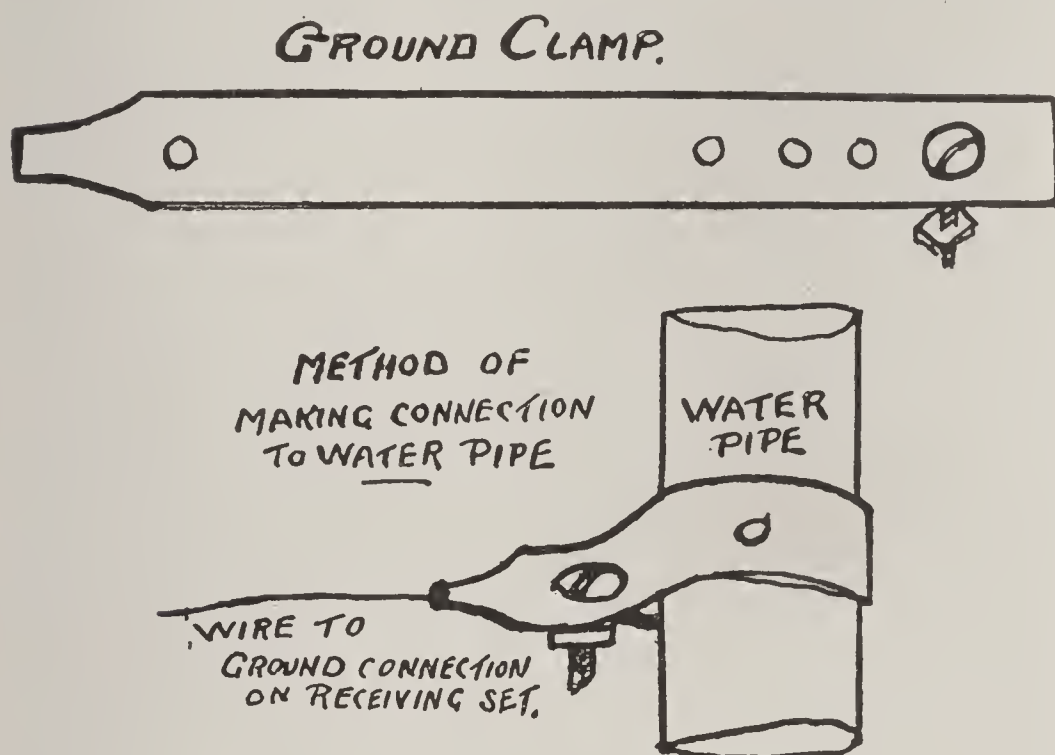 GROUND CLAMP.
METHOD OF
MAKING CONNECTION
TO WATER PIPE
WATER
PIPE
WIRE TO
GROUND CONNECTION
ON RECEIVING SET.